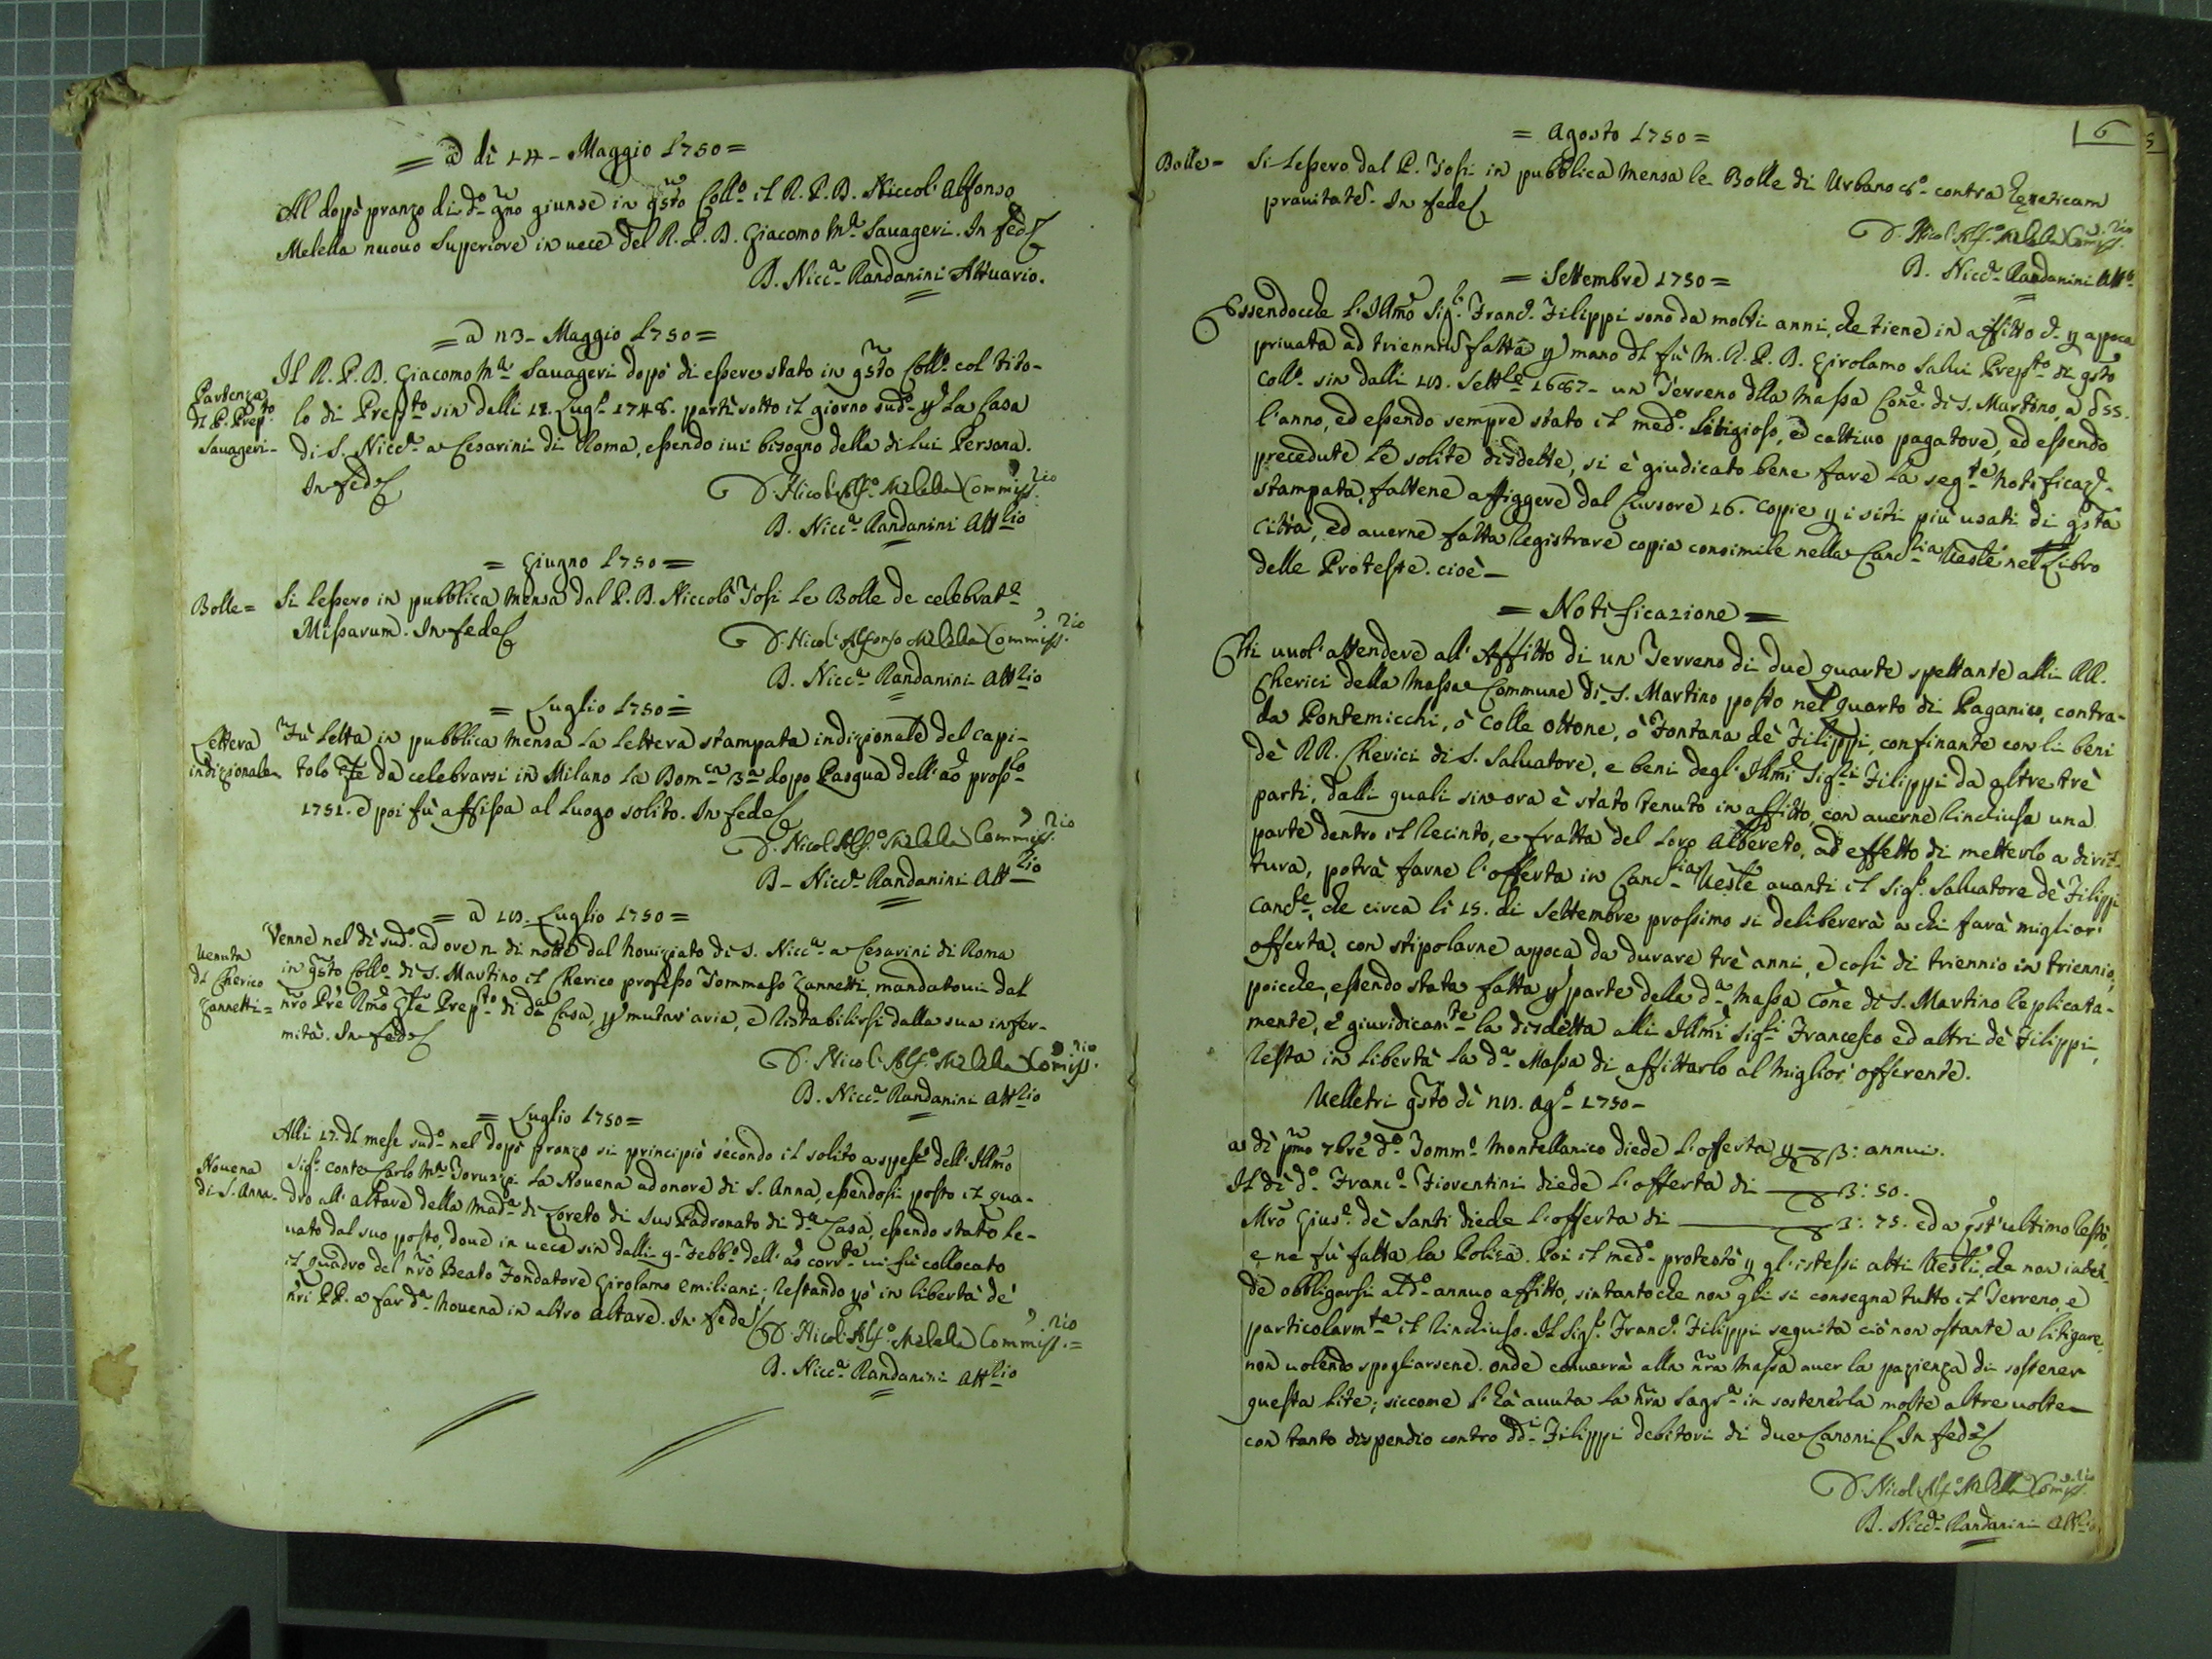 = a dì 14 - Maggio 1750 =
Al dopò pranzo di do. gno giunse in qsto Collo. il R. P. D. Niccol' Alfonso
Melella nuovo Superiore in vece del R. P. D. Giacomo Ma. Savageri. In fede
D. Nicca. Randanini Attuario.
= a 23 - Maggio 1750 =
Partenza
dl P. Prepto.
Savageri -
Il R. P. D. Giacomo Ma. Savageri dopò di essere stato in qsto Collo. col tito-
lo di Prepto. sin dalli Lugo. 1748. partì sotto il giorno sudo. p la Casa
di S. Nicca. a Cesarini di Roma, essendo ivi bisogno della di lui Persona.
In fede
D. Nicol' Alfo. Melella Commissrio.
D. Nicca. Randanini Attrio
= Giugno 1750 =
Bolle =
Si lessero in pubblica Mensa dal P. D. Niccolò Tosi le Bolle de celebrate.
Missarum. In fede
D. Nicol' Alfonso Melella Commissrio.
D. Nicca. Randanini Attrio
= Luglio 1750 =
Lettera
indizionale
Fù letta in pubblica Mensa la lettera stampata indizionale del Capi-
tolo Gle da celebrarsi in Milano la Domca. 3a. dopo Pasqua dell' ao prosso.
1751. e poi fù affissa al luogo solito. In fede
D. Nicol' Alfo. Melella Commissrio.
D - Nicca. Randanini Attrio
= a Luglio 1750 =
Venuta
dl Cherico
Zannetti =
Venne nel dì sudo. ad ore 2 di notte dal Novizziato di S. Nicca. a Cesarini di Roma
in qsto Collo. di S. Martino il Cherico professo Tommaso Zannetti, mandatovi dal
nro Pre Rmo Gle Prepto. di da Casa, p mutar' aria, e ristabilirsi dalla sua infer-
mità. In fede
D. Nicol' Alfo. Melella Comissrio.
D. Nicca. Randanini Attrio
= Luglio 1750 =
Novena
di S. Anna -
Alli 17. dl mese sudo. nel dopò pranzo si principiò secondo il solito a spese dell' Illmo
Sigr. conte Carlo Ma. Toruzzi la Novena ad onore di S. Anna, essendosi posto il qua-
dro all' altare della Mada. di Loreto di Jus Padronato di da Casa, essendo stato le-
vato dal suo posto, dove in vece sin dalli 9 - Febbo. dell' ao corrte. vi fù collocato
il quadro del nro Beato Fondatore Girolamo Emiliani; restando pò in libertà de'
nri PP. a far da. Novena in altro altare. In fede
D. Nicol' Alfo. Melella Commissrio. =
D. Nicca. Randanini Attrio
6
5
= Agosto 1750 =
Bolle =
Si lessero dal P. Tosi in pubblica Mensa le Bolle di Urbano 8o. contra hereticam
pravitate. In fede
D. Nicol' Alfo. Melella Commissrio.
D. Nicca. Randanini Atto.
= Settembre 1750 =
Essendoche l' Illmo Sigr. Franco. Filippi sono da molti anni, che tiene in affitto p apoca
privata ad triennium fatta p mano dl fù M. R. P. D. Girolamo Salvi Prepto. di qsto
Collo. sin dalli Settbe. 1687 - un Terreno dlla Massa Cone di S. Martino, a 55.
l'anno, ed essendo sempre stato il medo. litigioso, e cattivo pagatore, ed essendo
precedute le solite disdette, si è giudicato bene fare la segte. Notificaze.
stampata, fattene affiggere dal Cursore 16. copie p i siti più usati di qsta
città, ed averne fatta registrare copia consimile nella Canclia. Veste nel Libro
delle Proteste. cioè -
= Notificazione =
Chi vuol' attendere all' Affitto di un Terreno di due quarte spettante alli RR.
Cherici della Massa Commune di S. Martino posto nel quarto di Paganico, contra-
da Pontemicchi, ò Colle Ottone, ò Fontana dè Filippi, confinante con li beni
dè RR. Cherici di S. Salvatore, e beni degl' Illmi Sigri. Filippi da altre trè
parti, dalli quali sin ora è stato tenuto in affitto, con averne rinchiusa una
parte dentro il recinto, e fratta del loro Albereto, ad effetto di metterlo a dirit-
tura, potrà farne l'offerta in Canclia. Veste avanti il Sigr. Salvatore dè Filippi
Cancre, che circa li 15. di Settembre prossimo si delibererà a chi farà miglior'
offerta, con stipolarne apoca da durare trè anni, e così di triennio in triennio,
poiche, essendo stata fatta p parte della da. Massa Cone di S. Martino replicata-
mente, e giuridicamte. la disdetta alli Illmi Sigri. Francesco ed altri dè Filippi
resta in libertà la da. Massa di affittarlo al miglior' offerente.
Velletri qsto dì Ago. 1750 -
a dì pmo 7bre do. Tommo. Montellanico diede l'offerta p 3: annui.
Il dì do. Franco. Fioventini diede l'offerta di 3: 50.
Mro Giuse. dè Santi diede l'offerta di 3: 75. ed a qst' ultimo restò,
e ne fù fatta la Poliza. Poi il medo. protestò p gl' istessi atti Vesti, che non inten-
de obbligarsi al do. annuo affitto, sintantoche non gli si consegna tutto il Terreno, e
particolarmte. il rinchiuso. Il Sigr. Franco. Filippi seguita ciò non ostante a litigare,
non volendo spogliarsene. onde converrà alla nra Massa aver la pazienza di sostener
questa lite; siccome l'hà avuta la nra Sagra. in sostenerla molte altre volte
con tanto dispendio contro ddi. Filippi debitori di due Canoni. In fede
D. Nicol' Alfo. Melella Comissrio.
D. Nicca. Randanini Attrio